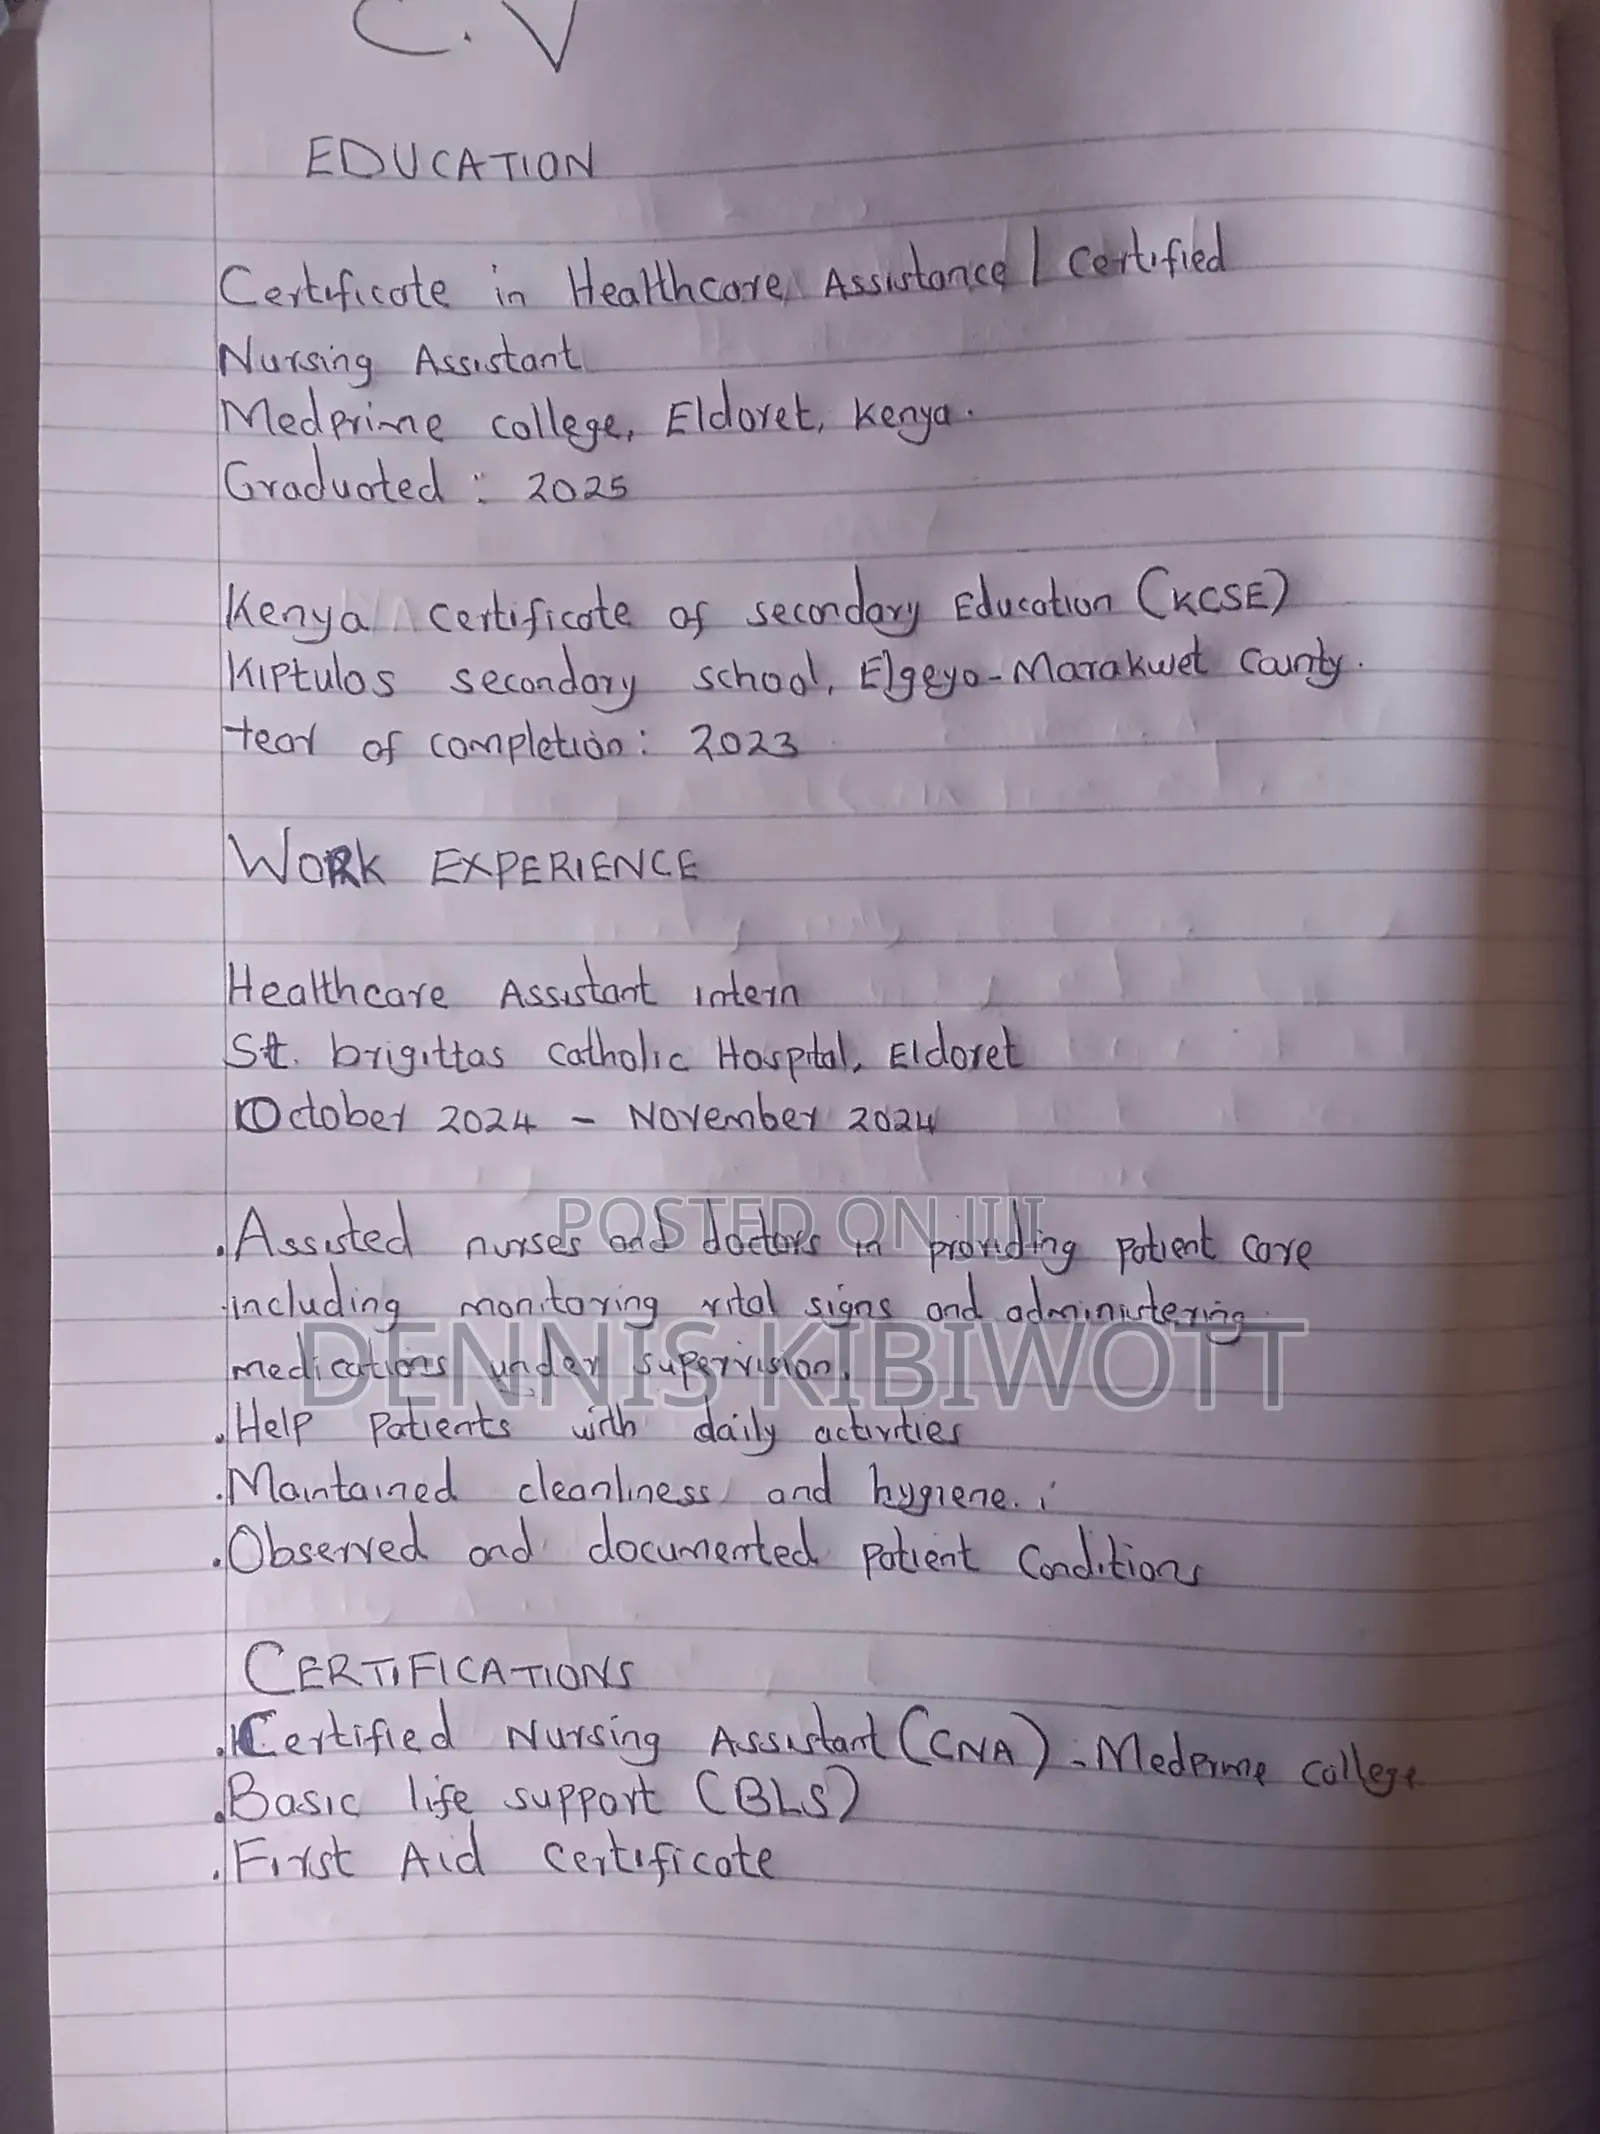 C.V
EDUCATION
Certificate in Healthcare Assistance / Certified
Nursing Assistant
Medprime college, Eldoret, Kenya.
Graduated : 2025
Kenya Certificate of secondary Education (KCSE)
Kiptulos secondary school, Elgeyo-Marakwet County.
Year of completion: 2023
WORK EXPERIENCE
Healthcare Assistant intern
St. brigittas Catholic Hospital, Eldoret
October 2024 - November 2024
POSTED ON JIJI
. Assisted nurses and doctors in providing patient care
including monitoring vital signs and administering
DENNIS KIBIWOTT
medications under supervision.
. Help patients with daily activities
. Maintained cleanliness and hygiene.
. Observed and documented patient Conditions
CERTIFICATIONS
. Certified Nursing Assistant (CNA) - Medprime college
. Basic life support (BLS)
. First Aid Certificate